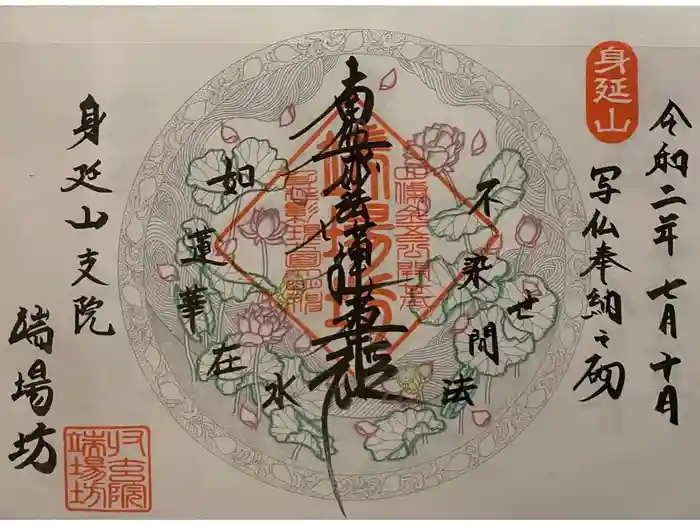 身延山
令和二年七月十日
写仏奉納之砌
南無妙法蓮華経
不染世間法
如蓮華在水
端場坊
身延山支院
端場坊
端場坊